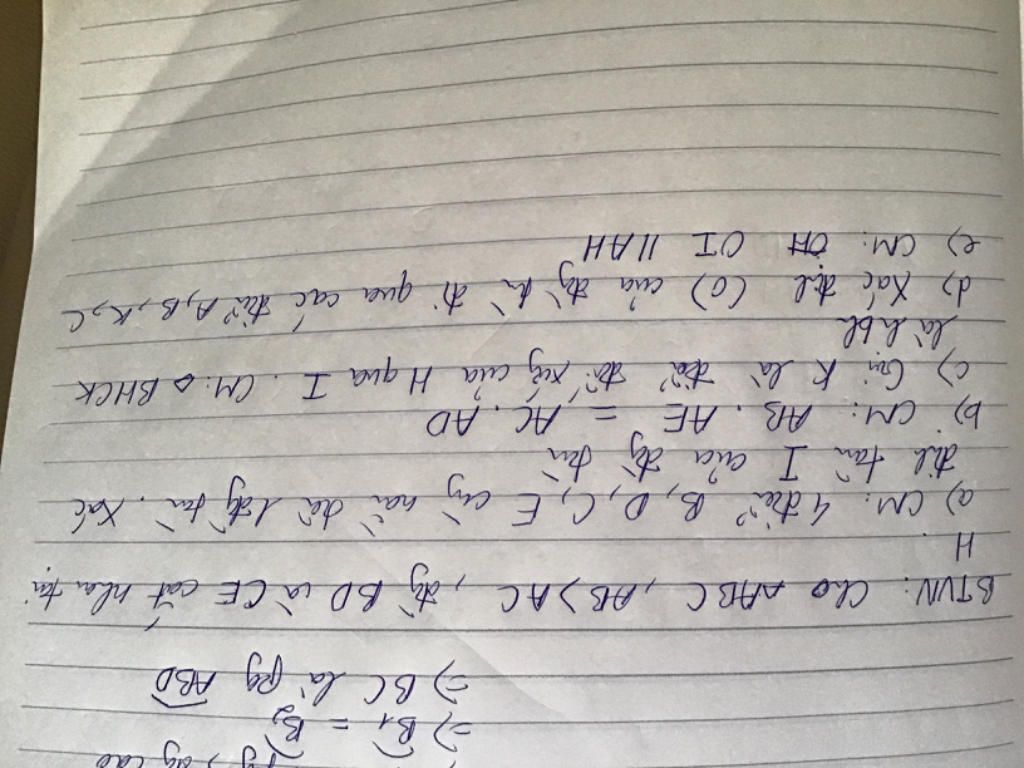 đg cao
=> B1 = B2
=> BC là pg ABD
BTVN: Cho △ABC, AB>AC, đg BD và CE cắt nhau tại
H.
a) CM: 4 điể B, D, C, E cùg nằ trê 1 đg trò. Xác
địh tâ I của đg trò
b) CM: AB. AE = AC. AD
c) Gọi K là điể đối xứg của H qua I. CM: ◇ BHCK
là hbh
d) Xác địh (O) của đg tr đi qua các điể A, B, K, C
e) CM: OI // AH